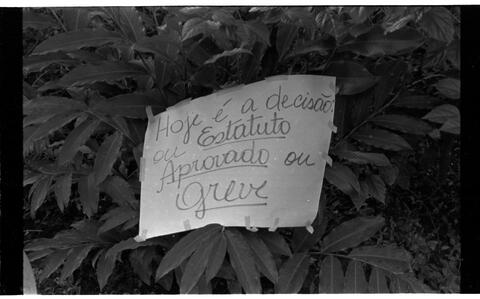 Hoje é a decisão:
ou Estatuto
Aprovado ou
Greve